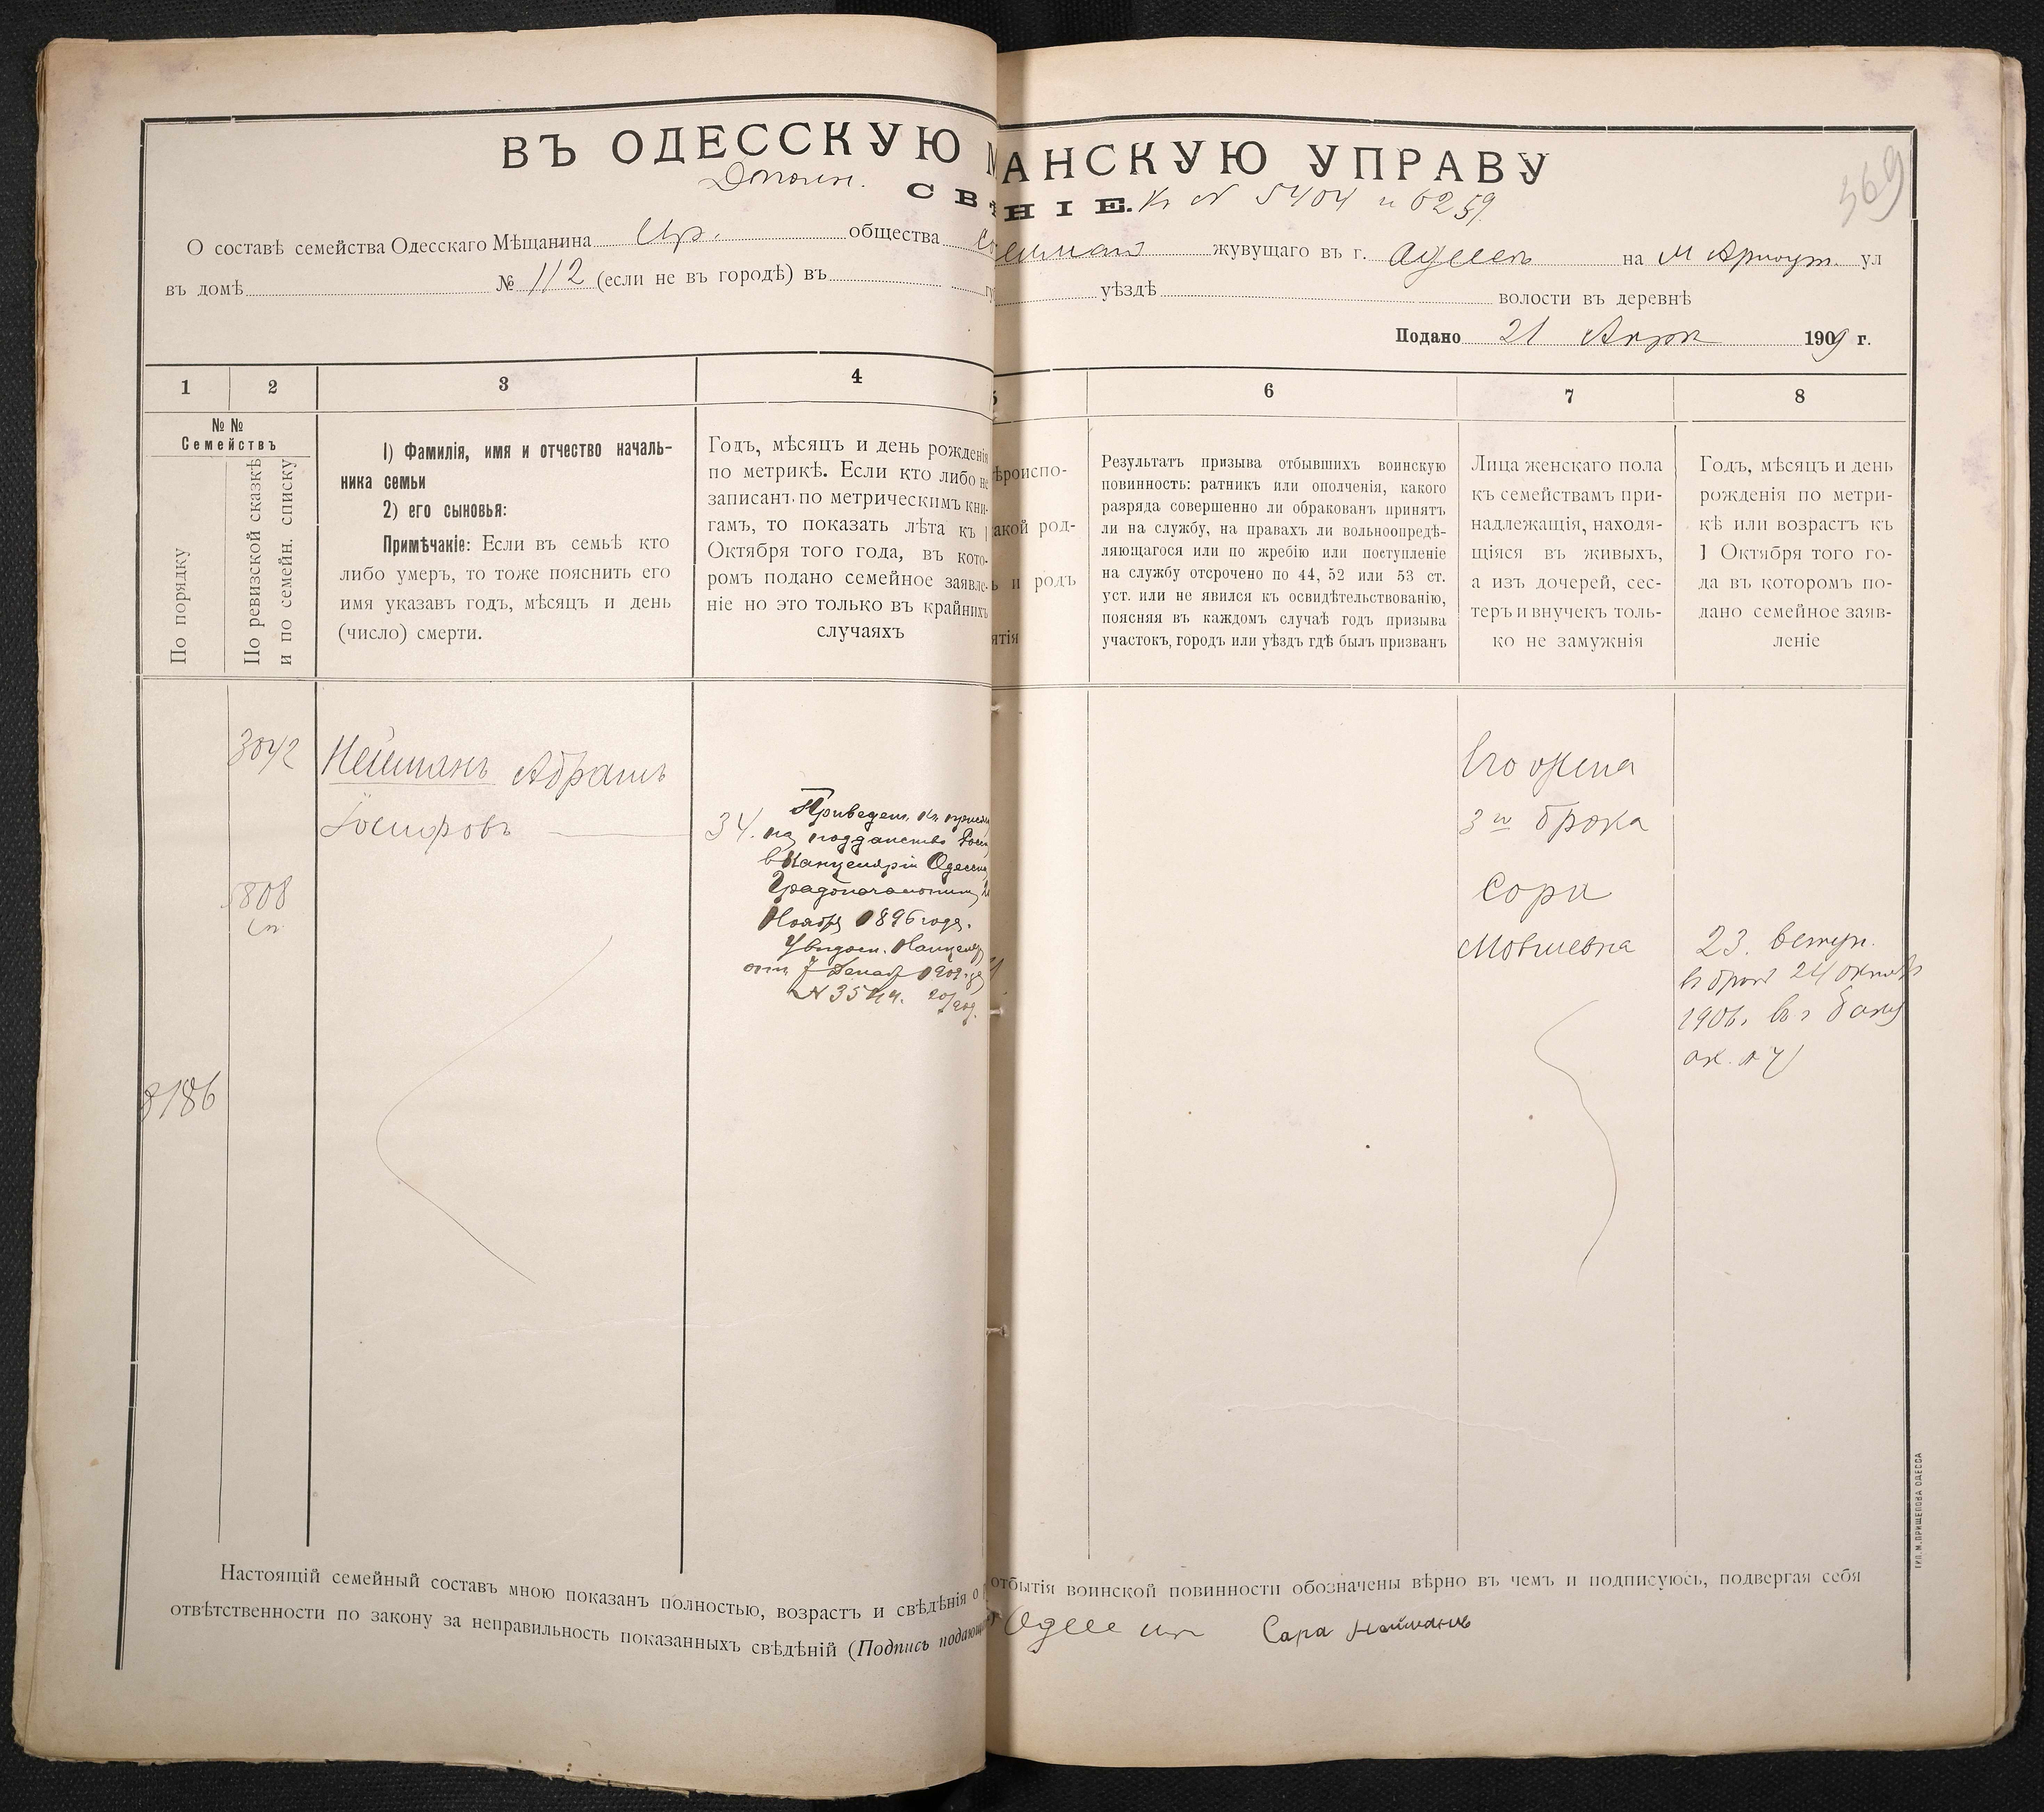 ВЪ ОДЕССКУЮ М АНСКУЮ УПРАВУ
Дополн. СВѢ НІЕ. Къ № 5404 и 6259.
369
О составѣ семейства Одесскаго Мѣщанина Евр. общества жувущаго въ г. Одессѣ на М Арнаут. ул
въ домѣ № 112 (если не въ городѣ) въ уѣздѣ волости въ деревнѣ
Подано 21 Апр 1909 г.
1 2 3 4 5 6 7 8
№№
Семействъ
По порядку
По ревизской сказкѣ
и по семейн. списку
1) Фамилія, имя и отчество началь-
ника семьи
2) его сыновья:
Примѣчакіе: Если въ семьѣ кто
либо умеръ, то тоже пояснить его
имя указавъ годъ, мѣсяцъ и день
(число) смерти.
Годъ, мѣсяцъ и день рожденія
по метрикѣ. Если кто либо не
записанъ по метрическимъ кни-
гамъ, то показать лѣта къ 1
Октября того года, въ кото-
ромъ подано семейное заявле-
ніе но это только въ крайнихъ
случаяхъ
ѣроиспо-
акой род-
ь и родъ
ятія
Результатъ призыва отбывшихъ воинскую
повинность: ратникъ или ополченія, какого
разряда совершенно ли обракованъ принятъ
ли на службу, на правахъ ли вольноопредѣ-
ляющагося или по жребію или поступленіе
на службу отсрочено по 44, 52 или 53 ст.
уст. или не явился къ освидѣтельствованію,
поясняя въ каждомъ случаѣ годъ призыва
участокъ, городъ или уѣздъ гдѣ былъ призванъ
Лица женскаго пола
къ семействамъ при-
надлежащія, находя-
щіяся въ живыхъ,
а изъ дочерей, сес-
теръ и внучекъ толь-
ко не замужнія
Годъ, мѣсяцъ и день
рожденія по метри-
кѣ или возрастъ къ
1 Октября того го-
да въ которомъ по-
дано семейное заяв-
леніе
3042
Нейманъ Абрамъ
Іосифовъ
34.
808
8186
Приведенъ къ
на подданство Росс
въ Канцеляріи Одесск
Градоначальник
Ноября 1896 года.
Увѣдом. Канцеляр
отъ 7 Декаб 1909 года
Его жена
3го брака
Сора
Мовшевна
23. вступ.
въ бракъ 24 октяб
1906. въ г Баку
ак. № 4
Настоящій семейный составъ мною показанъ полностью, возрастъ и свѣдѣнія о отбытія воинской повинности обозначены вѣрно въ чемъ и подписуюсь, подвергая себя
отвѣтственности по закону за неправильность показанныхъ свѣдѣній (Подпись подающ Сара Нейманъ
ТИП. М. ПРИЩЕПОВА ОДЕССА